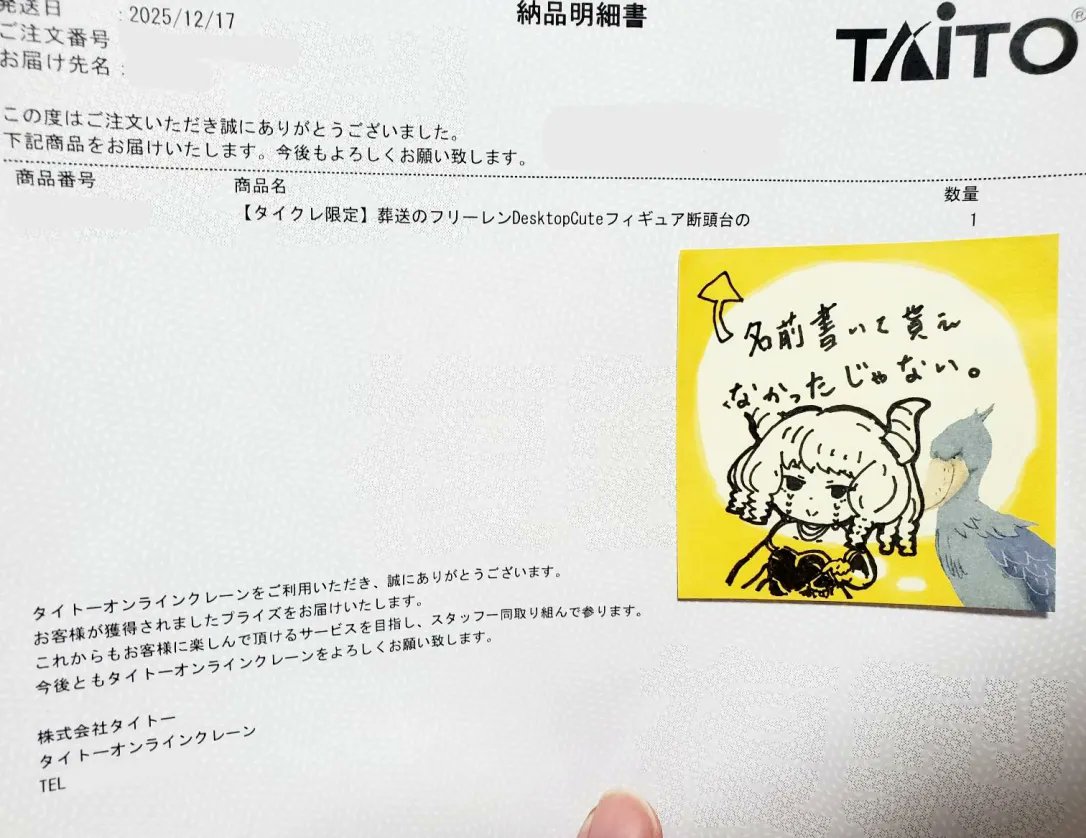 発送日 : 2025/12/17
納品明細書
TAITO®
ご注文番号
お届け先名 :
この度はご注文いただき誠にありがとうございました。
下記商品をお届けいたします。今後もよろしくお願い致します。
商品番号 商品名 数量
【タイクレ限定】葬送のフリーレンDesktopCuteフィギュア断頭台の 1
名前書いて貰え
なかったじゃない。
タイトーオンラインクレーンをご利用いただき、誠にありがとうございます。
お客様が獲得されましたプライズをお届けいたします。
これからもお客様に楽しんで頂けるサービスを目指し、スタッフ一同取り組んで参ります。
今後ともタイトーオンラインクレーンをよろしくお願い致します。
株式会社タイトー
タイトーオンラインクレーン
TEL